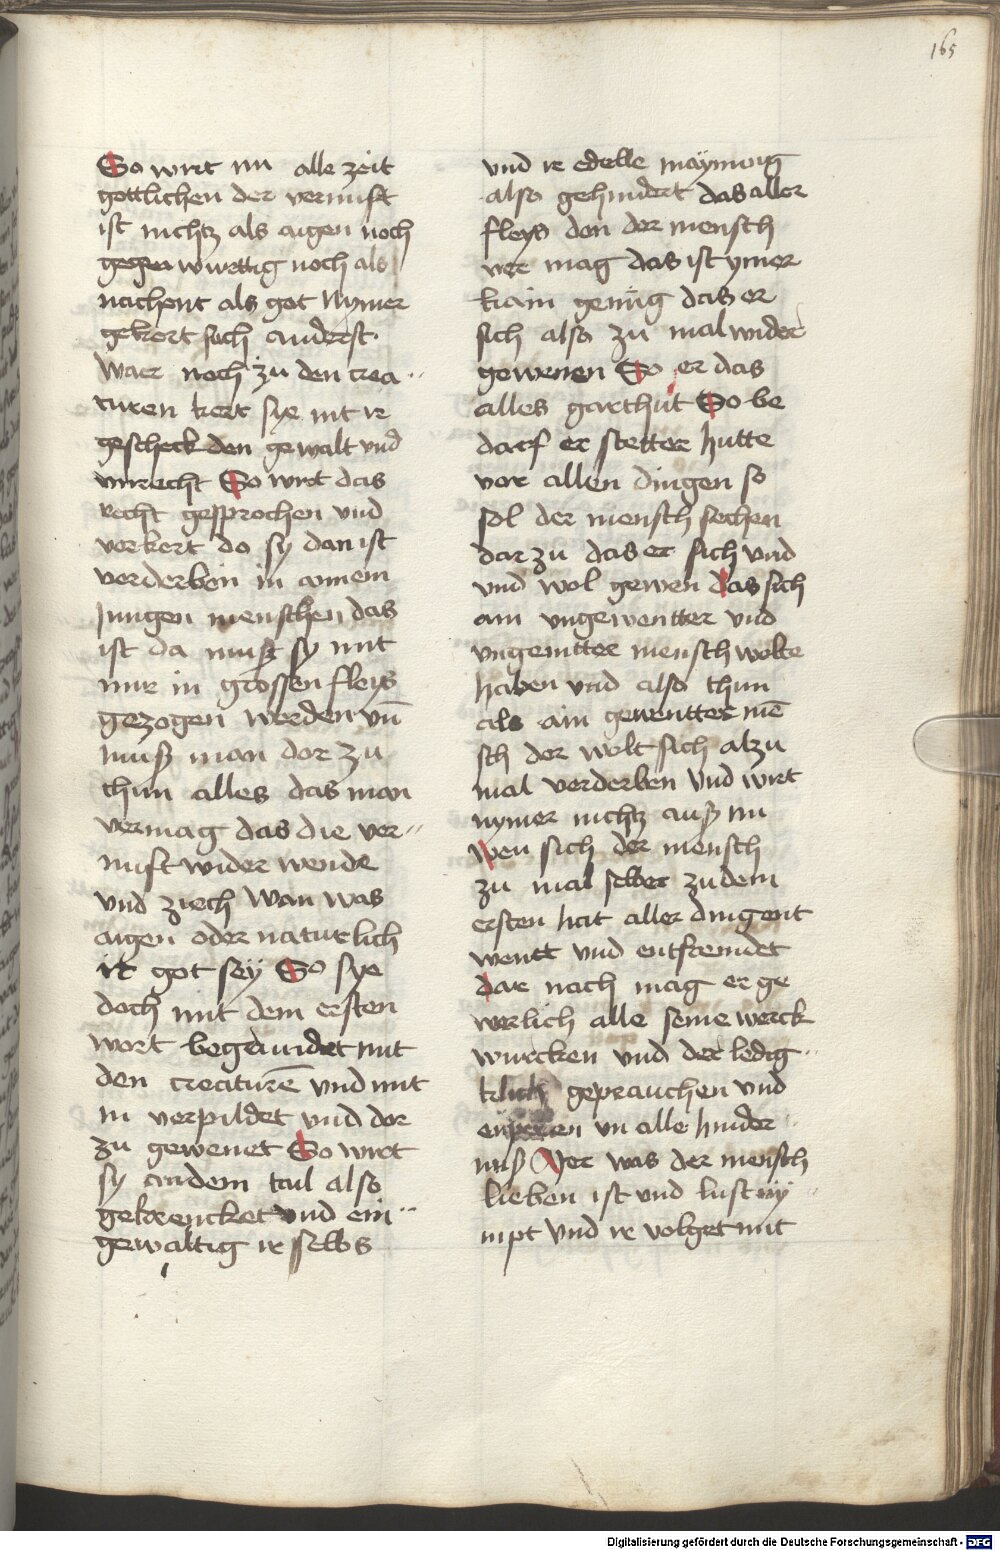 165
So wirt im alle zeit
gottlichen der vernuft
ist nichtz als aigen noch
gegen wurttig noch als
nachent als got Nymer
gekort sich anderst
waer noch zu den crea
turen kert sye mt ir
gescheck den gewalt vnd
vnrecht So wirt das
recht gesprochen vnd
verkert do sy dan ist
verderben in ainem
Jungen menschen das
ist da musz sy mit
mir in grossen fleys
gezogen werden vn̄
musz man dor zu
thun alles das man
vermag das die ver
nuft wider wende
vnd ziech wan was
aigen oder naturlich
ir got sey So sye
doch mit dem ersten
wort begaundet mit
den creaturē vnd mit
in verpildet vnd dor
zu gewenet So wirt
sy an dem tail also
gekrencket vnd ein
gewaltig ir selbs
vnd ir edelle maynung
also gehindert das aller
fleys den der mensch
ver mag das ist ymer
kain genug das er
sich also zu mal wider
gewenen So er das
alles garthut So be
darf er stetter hutte
vor allen dingen so
sol der mensch sechen
dar zu das er sich vnd
vnd wol gewen das sich
ain vngewentter vnd
vngemtter mensch wolte
haben vnd also thun
als ain gewentter mē
sch der wolt sich alzu
mal verderben vnd wirt
nymer nichtz ausz im
wen sich der mensch
zu mal selber zu dem
ersten hat aller dingent
wentt vnd entfremdet
dar nach mag er ge
werlich alle seine werck
wurcken vnd der ledig
klich geprauchen vnd
vn alle hinder
nusz Aer was der mensch
lieben ist vnd lust ny
mpt vnd ir volget mit
Digitalisierung gefördert durch die Deutsche Forschungsgemeinschaft - DFG